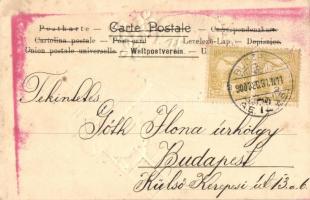 Postkarte — Carte Postale — Correspondenzkarte
Cartolina postale — Post card Levelező-Lap. — Dopisnice.
Union postale universelle. — Weltpostverein. — U
Tekintetes
Góth Ilona úrhölgy
Budapest
Külső Kerepesi út 13.a.6.